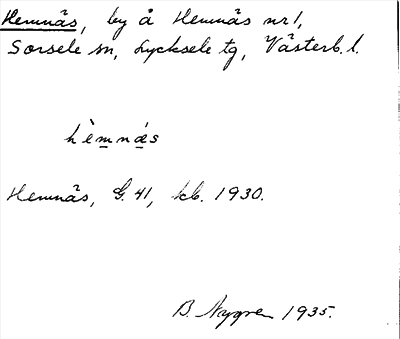 Hemnäs, by å Hemnäs nr 1,
Sorsele sn, Lycksele tg, Västerb. l.
hèmnǽs
Hemnäs, G. 41, kb. 1930.
B. Nygren 1935.